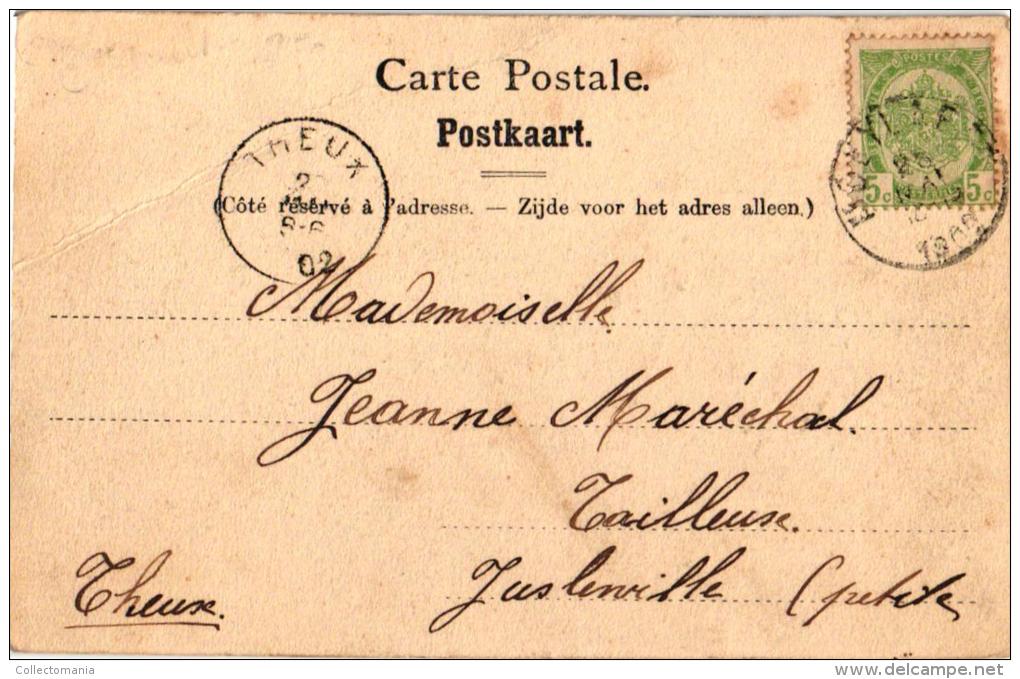 Carte Postale.
Postkaart.
(Côté réservé à l'adresse. — Zijde voor het adres alleen.)
POSTE
5c 5c
THEUX
8-6
02
Mademoiselle
Jeanne Maréchal.
Tailleuse.
Juslenville (petite
Theux.
Collectomania
www.delcampe.net